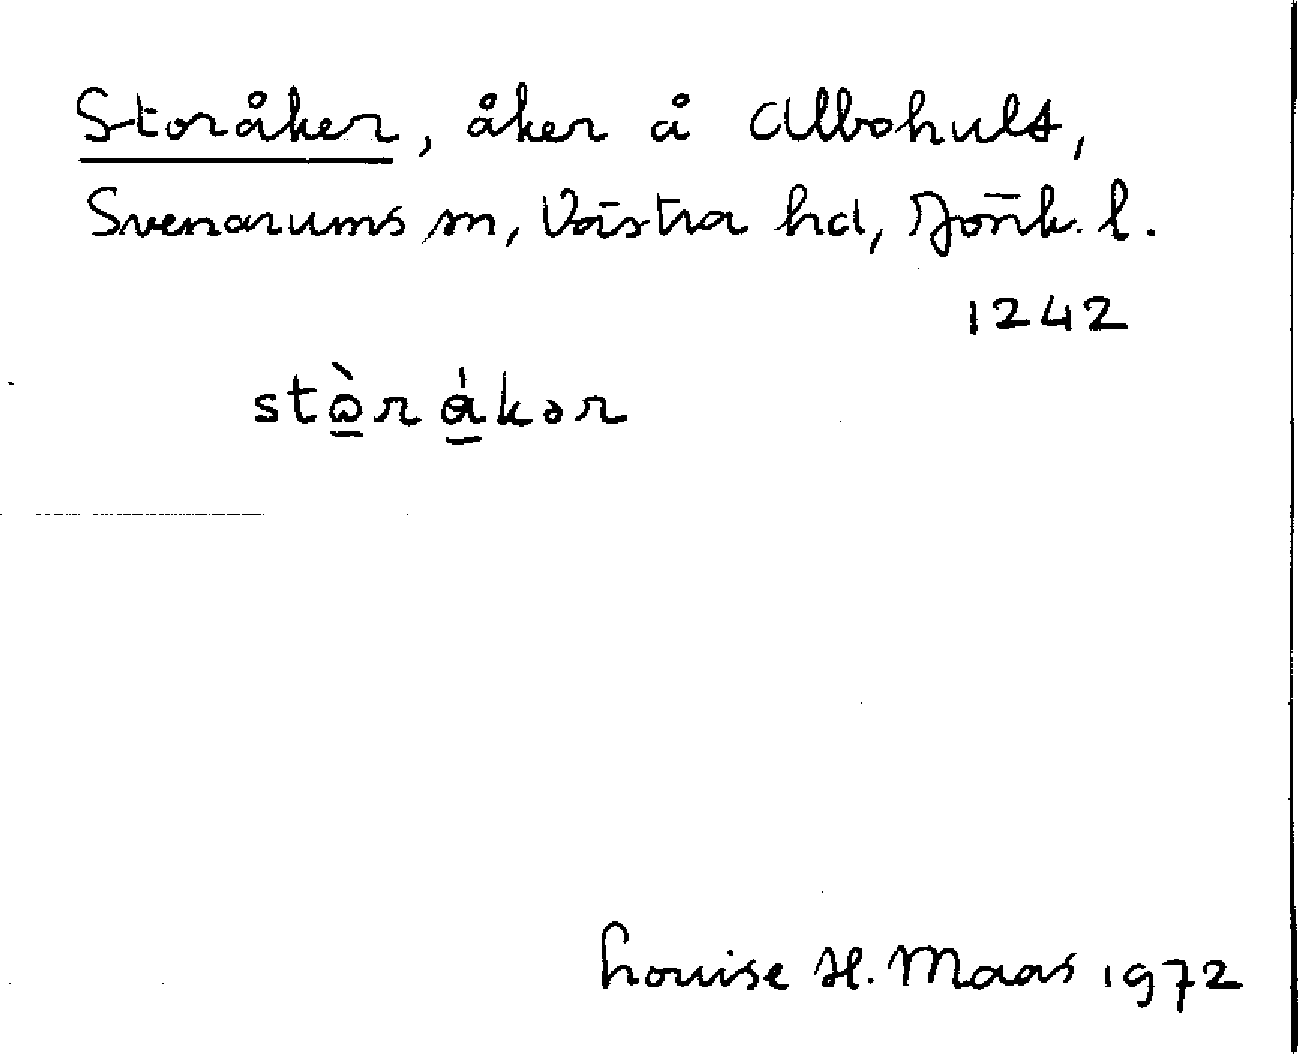 Storåker, åker å Albohult,
Svenarums sn, Västra hd, Jönk. l.
1242
stὼrákər
Louise H. Maas 1972